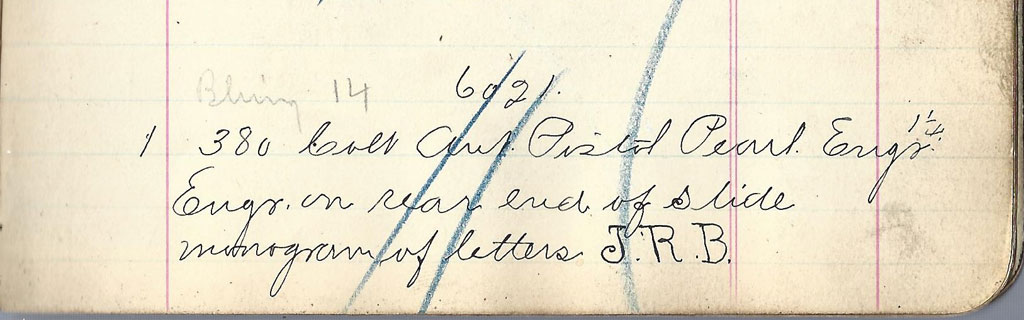 14 6021.
1 380 Colt Aut. Pistol Pearl Engr. 1 1/4
Engr. on rear end of slide
monogram of letters J.R.B.